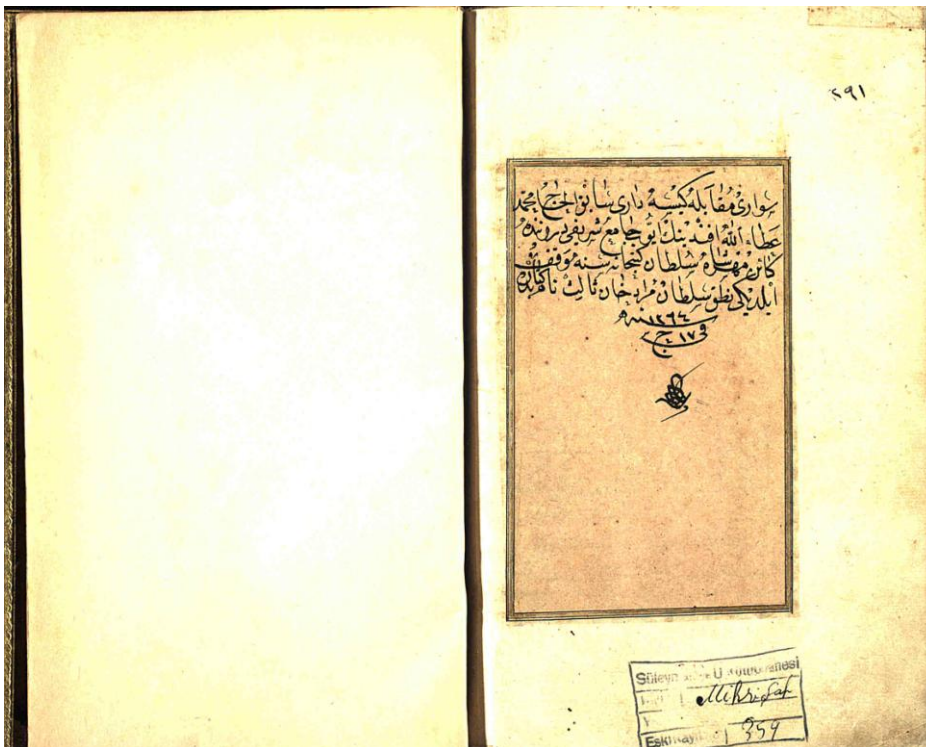 ٢٩١
سواری مقابله كیسه داری سابق الحاج محمد
عطاء الله افندینك ایوب جامع شریفی درونده
كائن مهرشاه سلطان كتبخانه سنه موقوف
ایلدیكی نطق سلطان مراد خان ثالث نام كتابدر
سنه ١٢٦٤
فی ١٧ ج
Süleymaniye U Kütüphanesi
Mihrişah
Y
Eski Kayıt 359